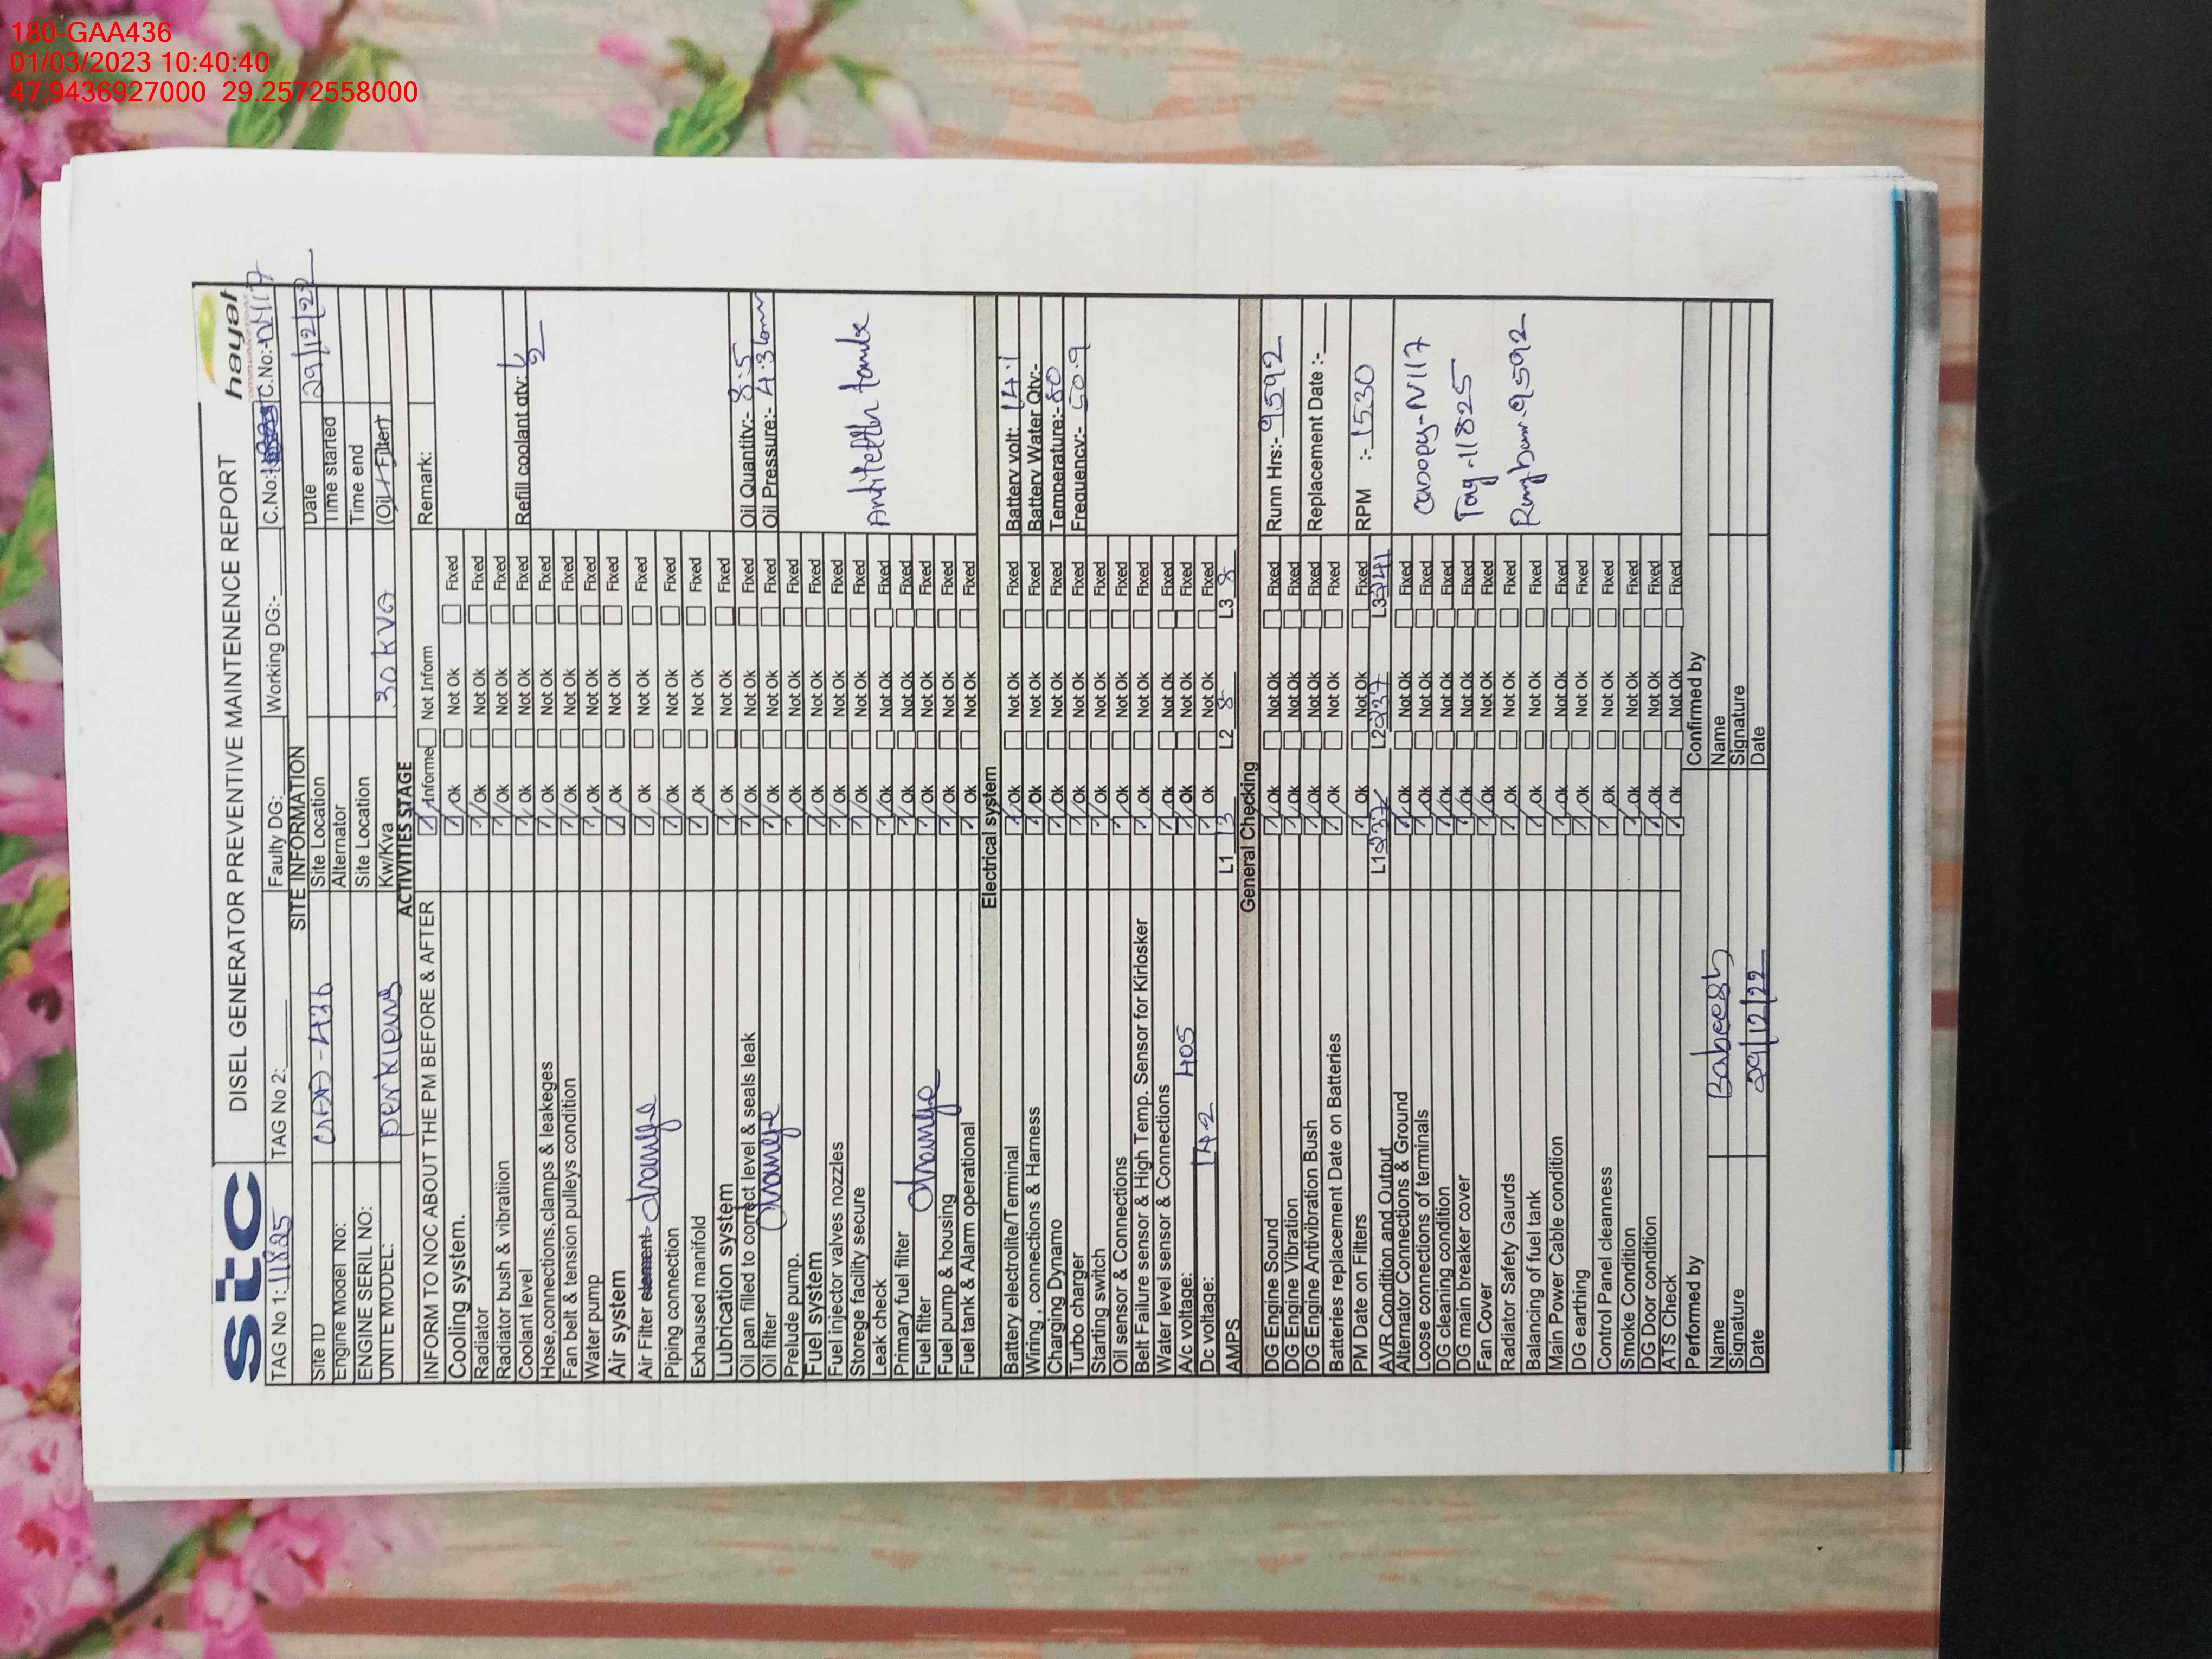 180-GAA436
01/03/2023 10:40:40
47.9436927000 29.2572558000
stc DISEL GENERATOR PREVENTIVE MAINTENENCE REPORT hayat
TAG No 1: 11825 TAG No 2: Faulty DG: Working DG:- C.No: C.No:- N117
SITE INFORMATION
Site ID GAA-436 Site Location Date 29/12/22
Engine Model No: Alternator Time started
ENGINE SERIL NO: Site Location Time end
UNITE MODEL: perkiens Kw/Kva 30 KVA (Oil+Filter)
ACTIVITIES STAGE
INFORM TO NOC ABOUT THE PM BEFORE & AFTER Informe Not Inform Remark:
Cooling system. Ok Not Ok Fixed
Radiator Ok Not Ok Fixed
Radiator bush & vibratiion Ok Not Ok Fixed
Coolant level Ok Not Ok Fixed Refill coolant qty: 1/2
Hose,connections,clamps & leakeges Ok Not Ok Fixed
Fan belt & tension pulleys condition Ok Not Ok Fixed
Water pump Ok Not Ok Fixed
Air system Ok Not Ok Fixed
Air Filter element change Ok Not Ok Fixed
Piping connection Ok Not Ok Fixed
Exhaused manifold Ok Not Ok Fixed
Lubrication system Ok Not Ok Fixed
Oil pan filled to correct level & seals leak Ok Not Ok Fixed Oil Quantity:- 8.5
Oil filter change Ok Not Ok Fixed Oil Pressure:- 4.3
Prelude pump. Ok Not Ok Fixed
Fuel system Ok Not Ok Fixed
Fuel injector valves nozzles Ok Not Ok Fixed
Storege facility secure Ok Not Ok Fixed
Leak check Ok Not Ok Fixed
Primary fuel filter Ok Not Ok Fixed
Fuel filter change Ok Not Ok Fixed
Fuel pump & housing Ok Not Ok Fixed
Fuel tank & Alarm operational Ok Not Ok Fixed
Electrical system
Battery electrolite/Terminal Ok Not Ok Fixed Battery volt: 14.1
Wiring , connections & Harness Ok Not Ok Fixed Battery Water Qty:-
Charging Dynamo Ok Not Ok Fixed Temperature:- 80
Turbo charger Ok Not Ok Fixed Frequency:- 50.9
Starting switch Ok Not Ok Fixed
Oil sensor & Connections Ok Not Ok Fixed
Belt Failure sensor & High Temp. Sensor for Kirlosker Ok Not Ok Fixed
Water level sensor & Connections Ok Not Ok Fixed
A/c voltage: 405 Ok Not Ok Fixed
Dc voltage: 14.2 Ok Not Ok Fixed
AMPS L1 13 L2 8 L3 8
General Checking
DG Engine Sound Ok Not Ok Fixed Runn Hrs:- 9592
DG Engine Vibration Ok Not Ok Fixed
DG Engine Antivibration Bush Ok Not Ok Fixed Replacement Date :-
Batteries replacement Date on Batteries Ok Not Ok Fixed
PM Date on Filters Ok Not Ok Fixed RPM :- 1530
AVR Condition and Output L1 237 L2 237 L3 241
Alternator Connections & Ground Ok Not Ok Fixed
Loose connections of terminals Ok Not Ok Fixed canopy-N117
DG cleaning condition Ok Not Ok Fixed
DG main breaker cover Ok Not Ok Fixed Tag-11825
Fan Cover Ok Not Ok Fixed
Radiator Safety Gaurds Ok Not Ok Fixed 9592
Balancing of fuel tank Ok Not Ok Fixed
Main Power Cable condition Ok Not Ok Fixed
DG earthing Ok Not Ok Fixed
Control Panel cleanness Ok Not Ok Fixed
Smoke Condition Ok Not Ok Fixed
DG Door condition Ok Not Ok Fixed
ATS Check Ok Not Ok Fixed
Performed by Confirmed by
Name Name
Signature Signature
Date 29/12/22 Date